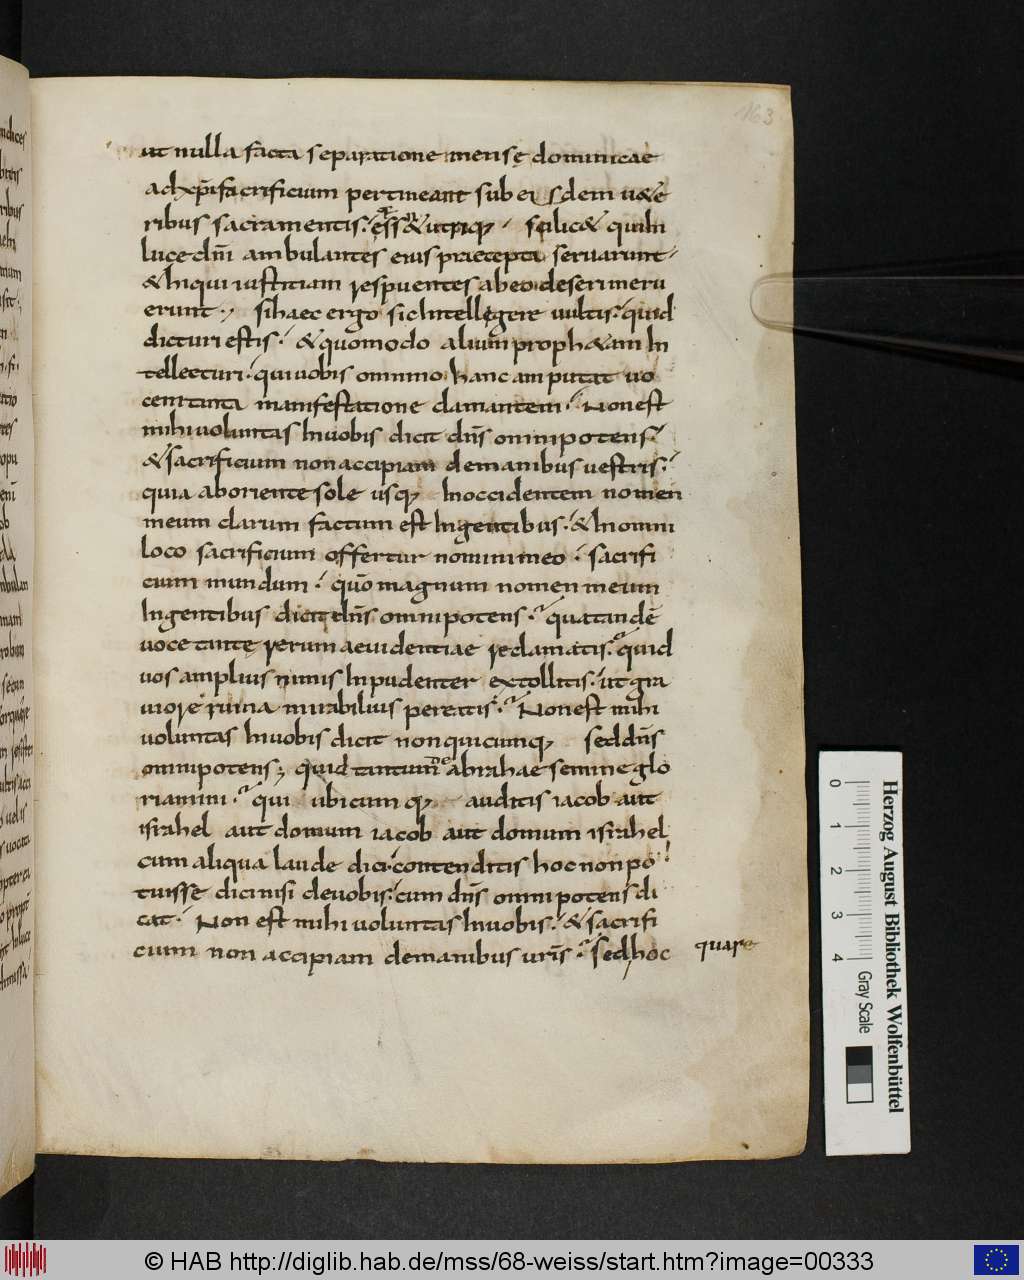 163
ut nulla facta separatione mense dominicae
ad xp̄i sacrificium pertineant sub eisdem uet&
ribus sacramentis. ess& utrique. scilic& qui in
luce dn̄i ambulantes eius praecepta seruarunt.
& hi qui iustitiam respuentes ab eo deseri meru
erunt. si haec ergo sic intellegere uultis. quid
dicturi estis. & quomodo alium proph&am in
tellecturi. qui uobis omnino hanc amputat uo
cem tanta manifestatione clamantem. Non est
mihi uoluntas in uobis dicit dn̄s omnipotens.
& sacrificium non accipiam de manibus uestris.
quia ab oriente sole usq; in occidentem nomen
meum clarum factum est in gentibus. & in omni
loco sacrificium offertur nomini meo. sacrifi
cium mundum. quō magnum nomen meum
in gentibus dicit dn̄s omnipotens. qua tandē
uoce tante rerum aeuidentiae reclamatis. quid
uos amplius nimis inpudenter extollitis. ut gra
uiore ruina mirabilius pereatis. Non est mihi
uoluntas in uobis dicit non quicumq; sed dn̄s
omnipotens; quid tantum de abrahae semine glo
riamini. qui ubicumq; auditis iacob aut
israhel aut domum iacob aut domum israhel
cum aliqua laude dici. contenditis hoc non po
tuisse dici nisi de uobis. cum dn̄s omnipotens di
cat. Non est mihi uoluntas in uobis. & sacrifi
cium non accipiam de manibus ur̄is. sed hoc
quare
Herzog August Bibliothek Wolfenbüttel
0 1 2 3 4 Gray Scale
© HAB http://diglib.hab.de/mss/68-weiss/start.htm?image=00333